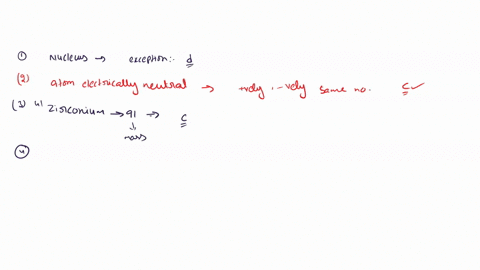 (1) Nucleus → exception:- d
(2) atom electrically neutral → +vely, -vely same no. c ✓
(3) Zirconium → 91 → c
↓
mass
(4)